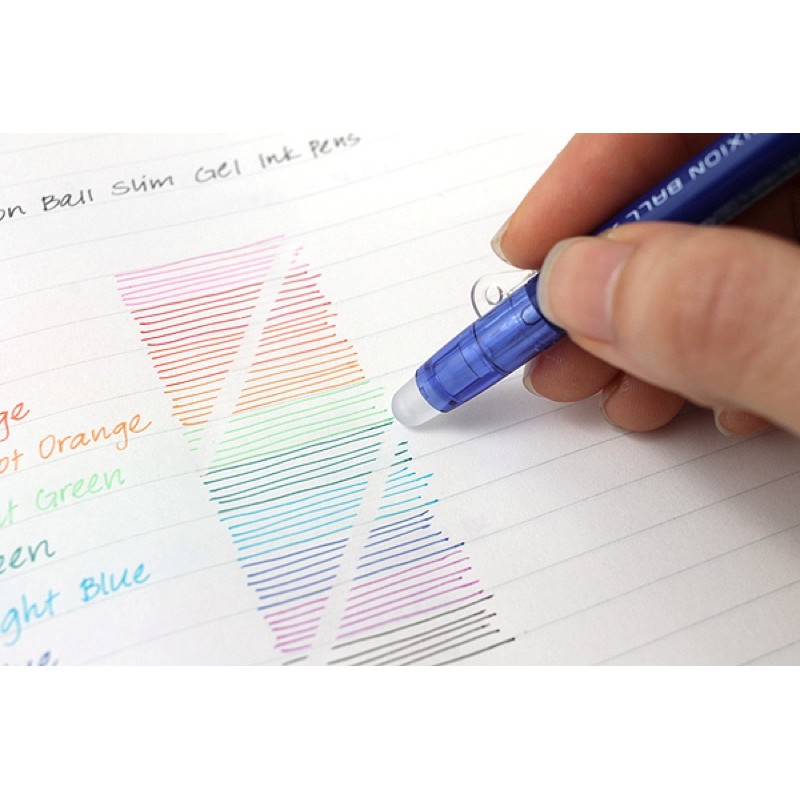 on Ball Slim Gel Ink Pens
ge
ot Orange
t Green
een
ght Blue
ue
IXION BALL